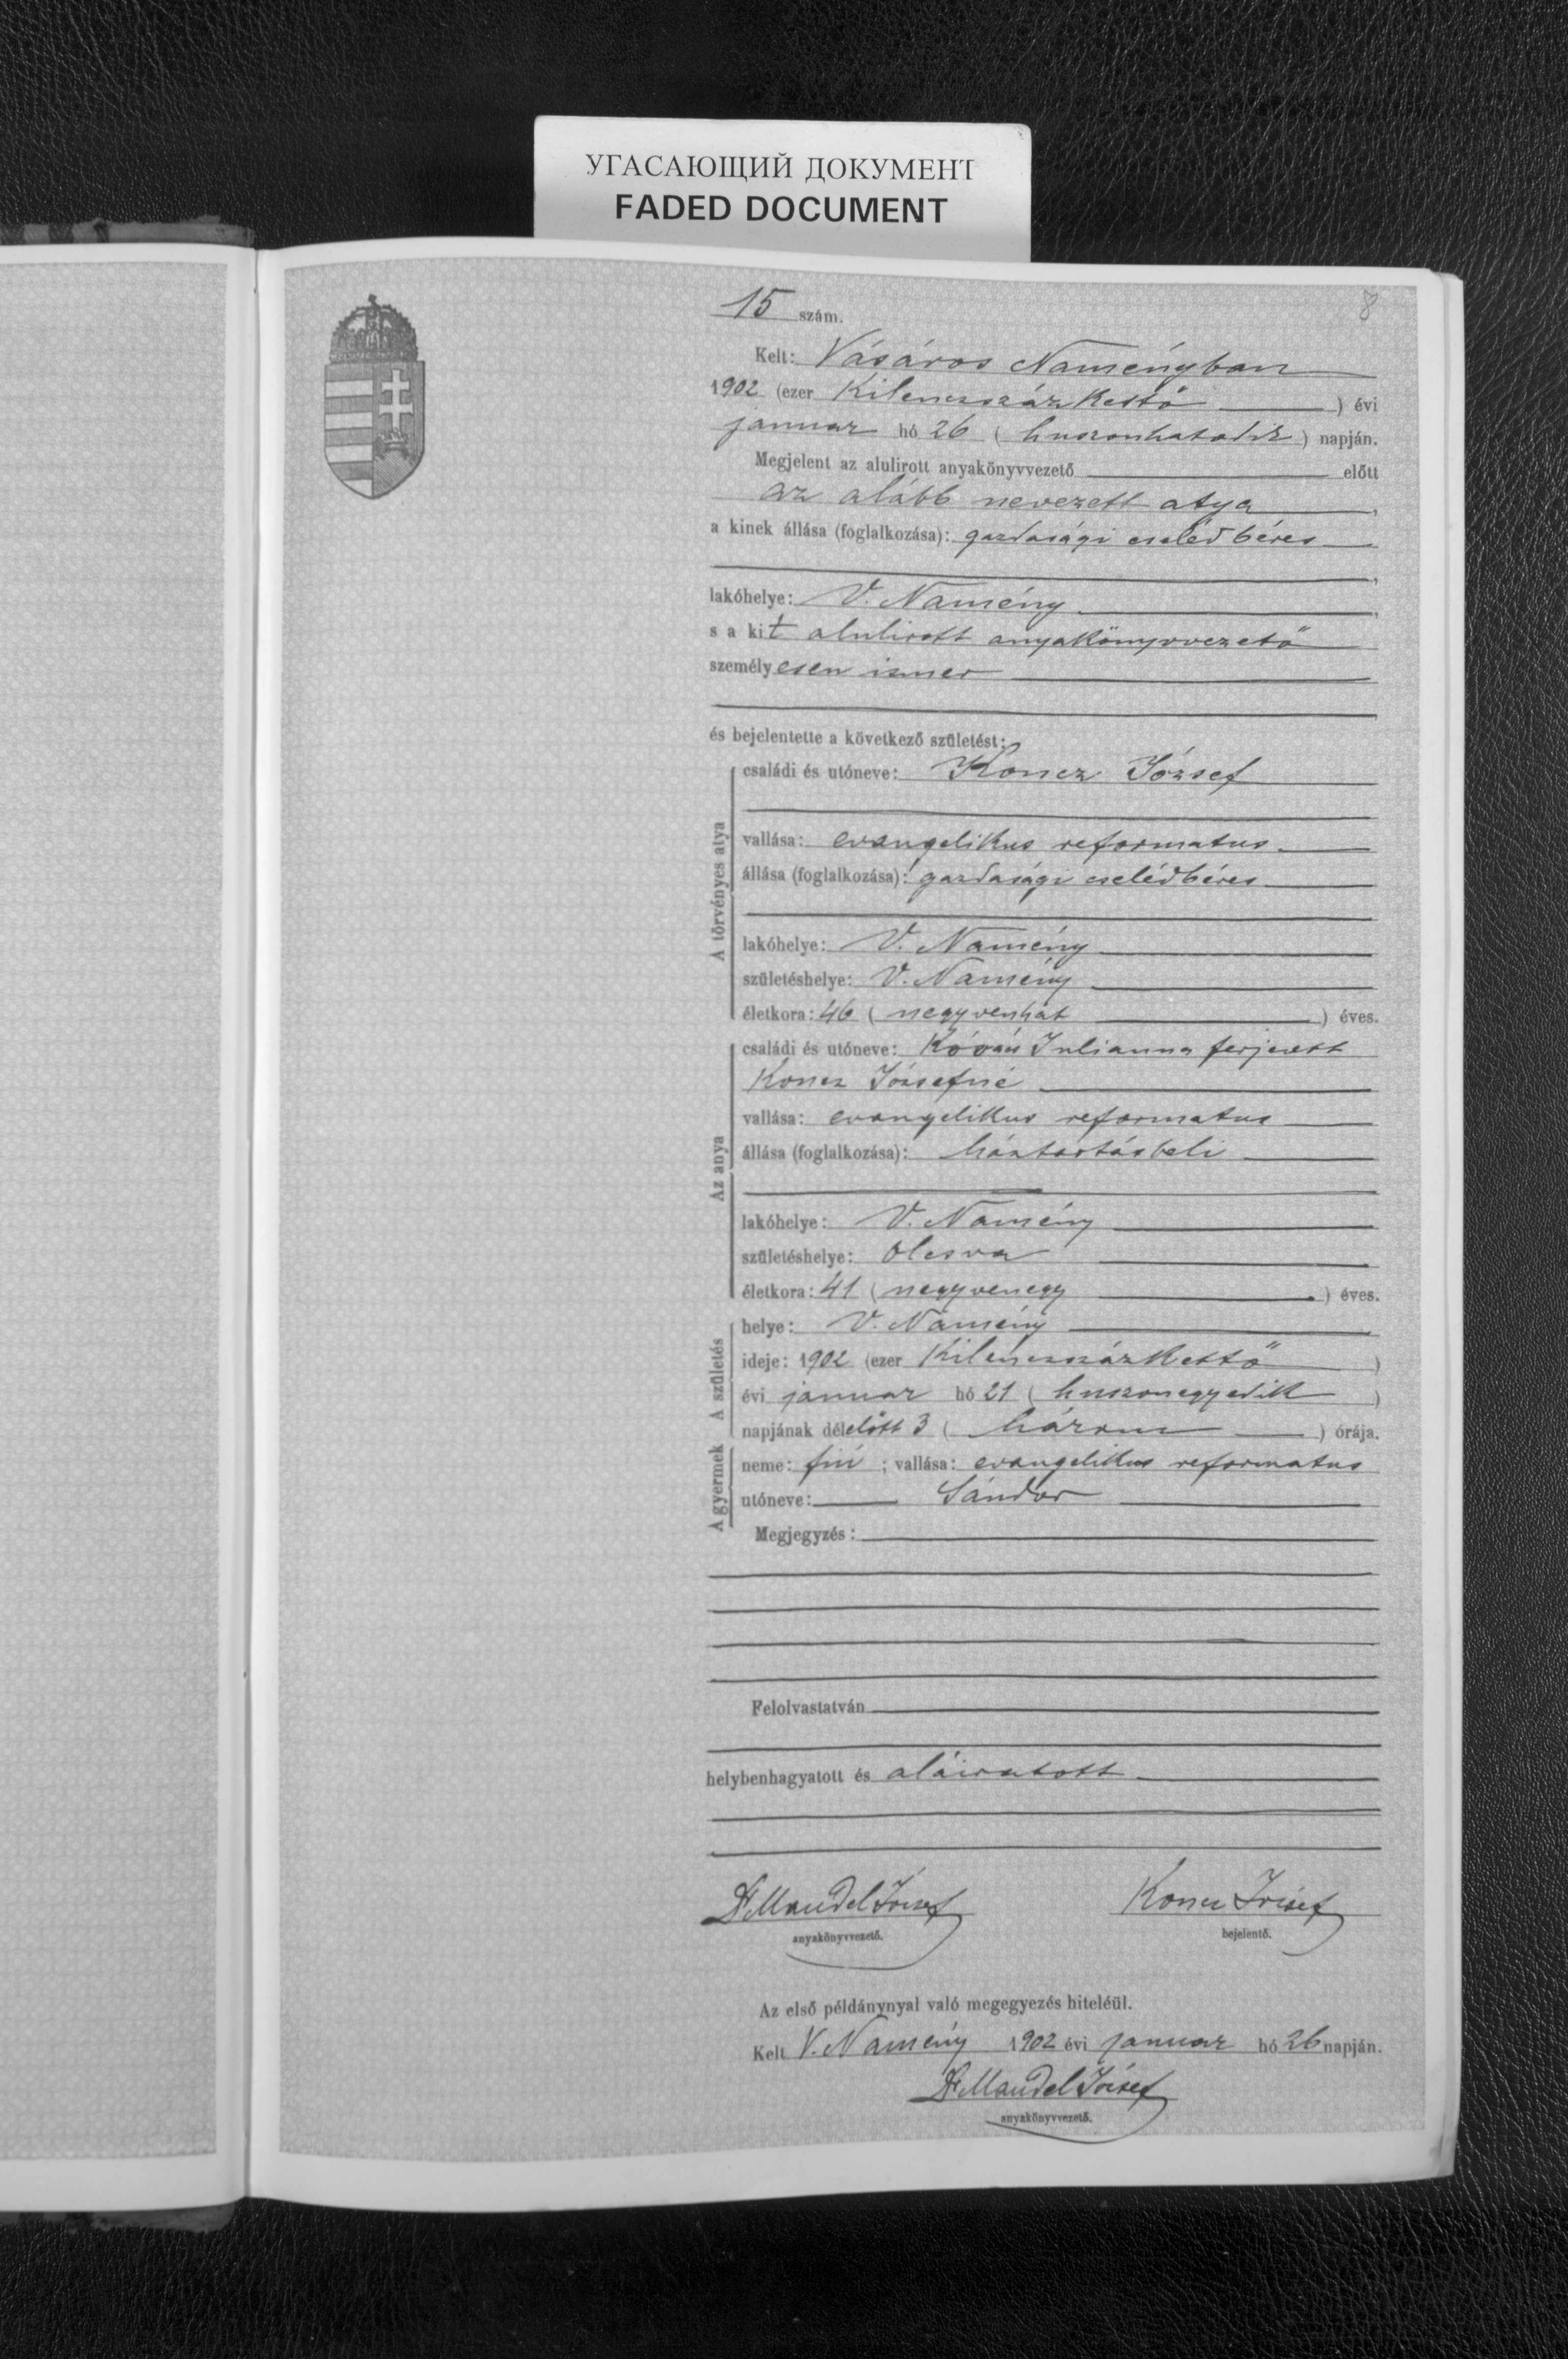 УГАСАЮЩИЙ ДОКУМЕНТ
FADED DOCUMENT
8
15 szám.
Kelt: Vásáros Naményban
1902 (ezer Kilenczszáz Kettő ) évi
januar hó 26 ( huszonhatodik ) napján.
Megjelent az alulirott anyakönyvvezető előtt
az alább nevezett atya,
a kinek állása (foglalkozása): gazdasági cseléd béres
,
lakóhelye: V. Namény,
s a kit alulirott anyakönyvvezető
személyesen ismer
és bejelentette a következő születést:
A törvényes atya
családi és utóneve: Koncz József
vallása: evangelikus reformatus
állása (foglalkozása): gazdasági cselédbéres
lakóhelye: V. Namény
születéshelye: V. Namény
életkora: 46 ( negyvenhat ) éves.
Az anya
családi és utóneve: Julianna ferjezett
Koncz Józsefné
vallása: evangelikus reformatus
állása (foglalkozása): háztartásbeli
lakóhelye: V. Namény
születéshelye: Olcsva
életkora: 41 ( negyvenegy ) éves.
A születés
helye: V. Namény
ideje: 1902 (ezer KilenczszázKettő )
évi januar hó 21 ( huszonegyedik )
napjának délelőtt 3 ( három ) órája.
A gyermek
neme: fiú ; vallása: evangelikus reformatus
utóneve: Sándor
Megjegyzés:
Felolvastatván
helybenhagyatott és aláiratott
Dr Mandel József Koncz József
anyakönyvvezető. bejelentő.
Az első példánynyal való megegyezés hiteléül.
Kelt V. Namény 1902 évi januar hó 26 napján.
Dr Mandel József
anyakönyvvezető.